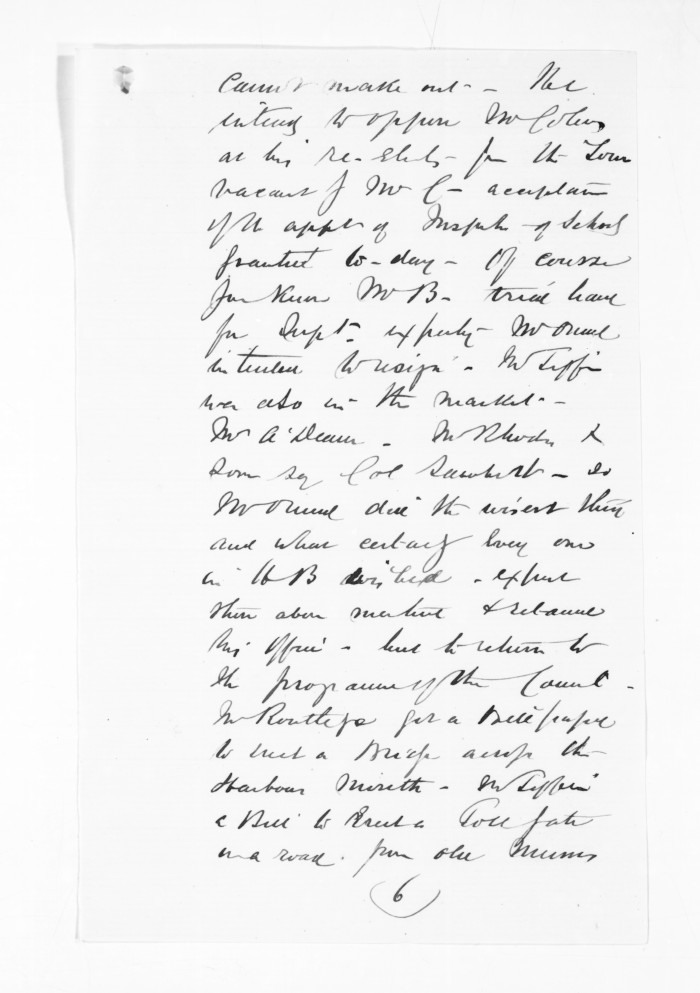 cannot make out - He
intends to oppose Mr Colenso
at his re-electn for the Town
vacant by Mr C- acceptance
of the appt of Inspectr of Schools
gazetted to-day - Of course
you know Mr B- tried hard
for Supt - expectg Mr Ormond
intended to resign - Mr Tiffin
was also in the market -
Mr A'Deane - Mr Rhodes &
some say Col Lambert - so
Mr Ormond did the wisest thing
and what certainly every one
in H B wished - except
those above mentioned & retained
his office - but to return to
the programme of the Council -
Mr Routledge got a Bill passed
to erect a Bridge across the
Harbour Mouth - Mr Tiffin
a Bill to Erect a Toll Gate
on a road. from old
(6)